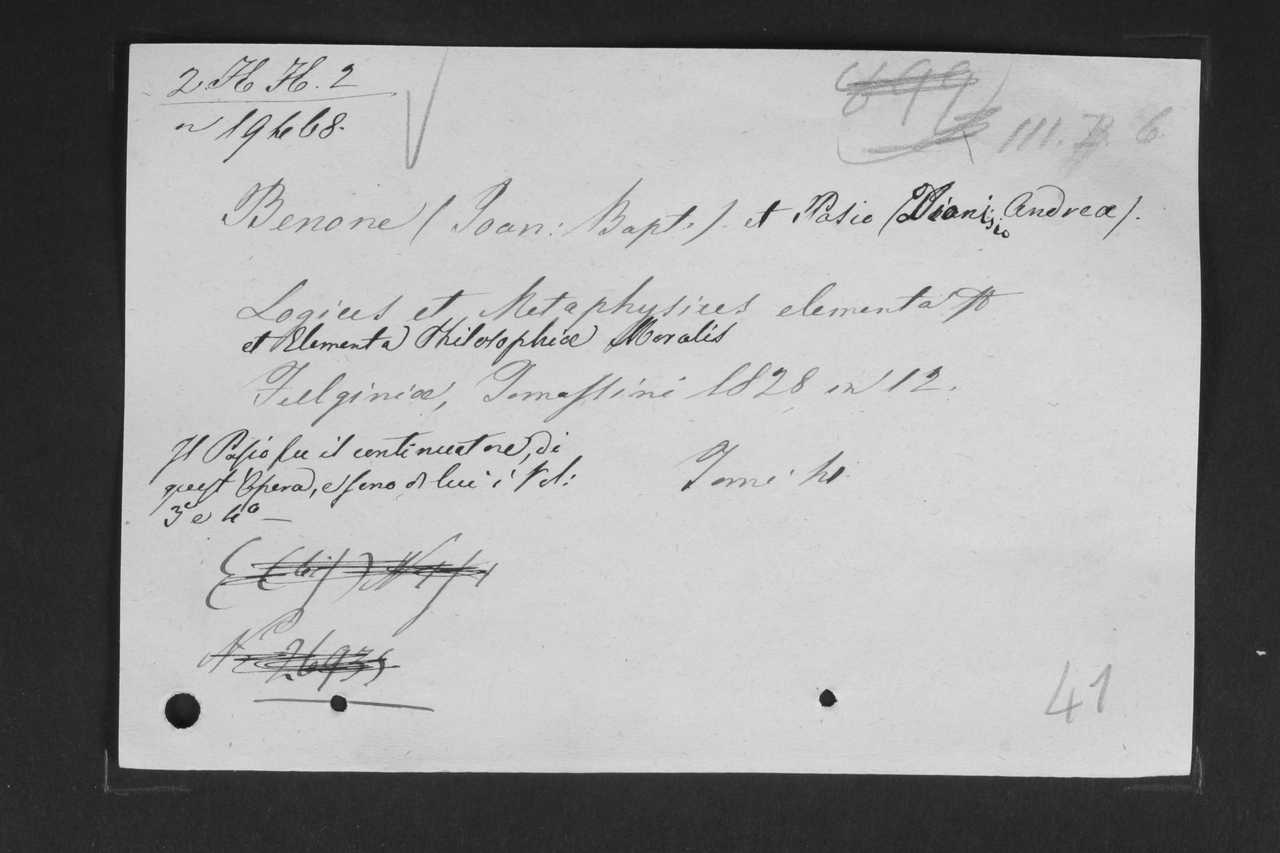 2 H H. 2
n 19468.
III. B. 6.
Benone (Joan: Bapt.) et Pasio (Dionisio Andrea).
Logices et Metaphysices elementa
et Elementa Philosophiæ Moralis
Fulginiæ, Tomassini 1828 in 12.
Il Pasio fu il continuatore, di
quest'Opera, e sono di lui i Vol:
3º e 4º —
Tomi 4
Nº 26935
41